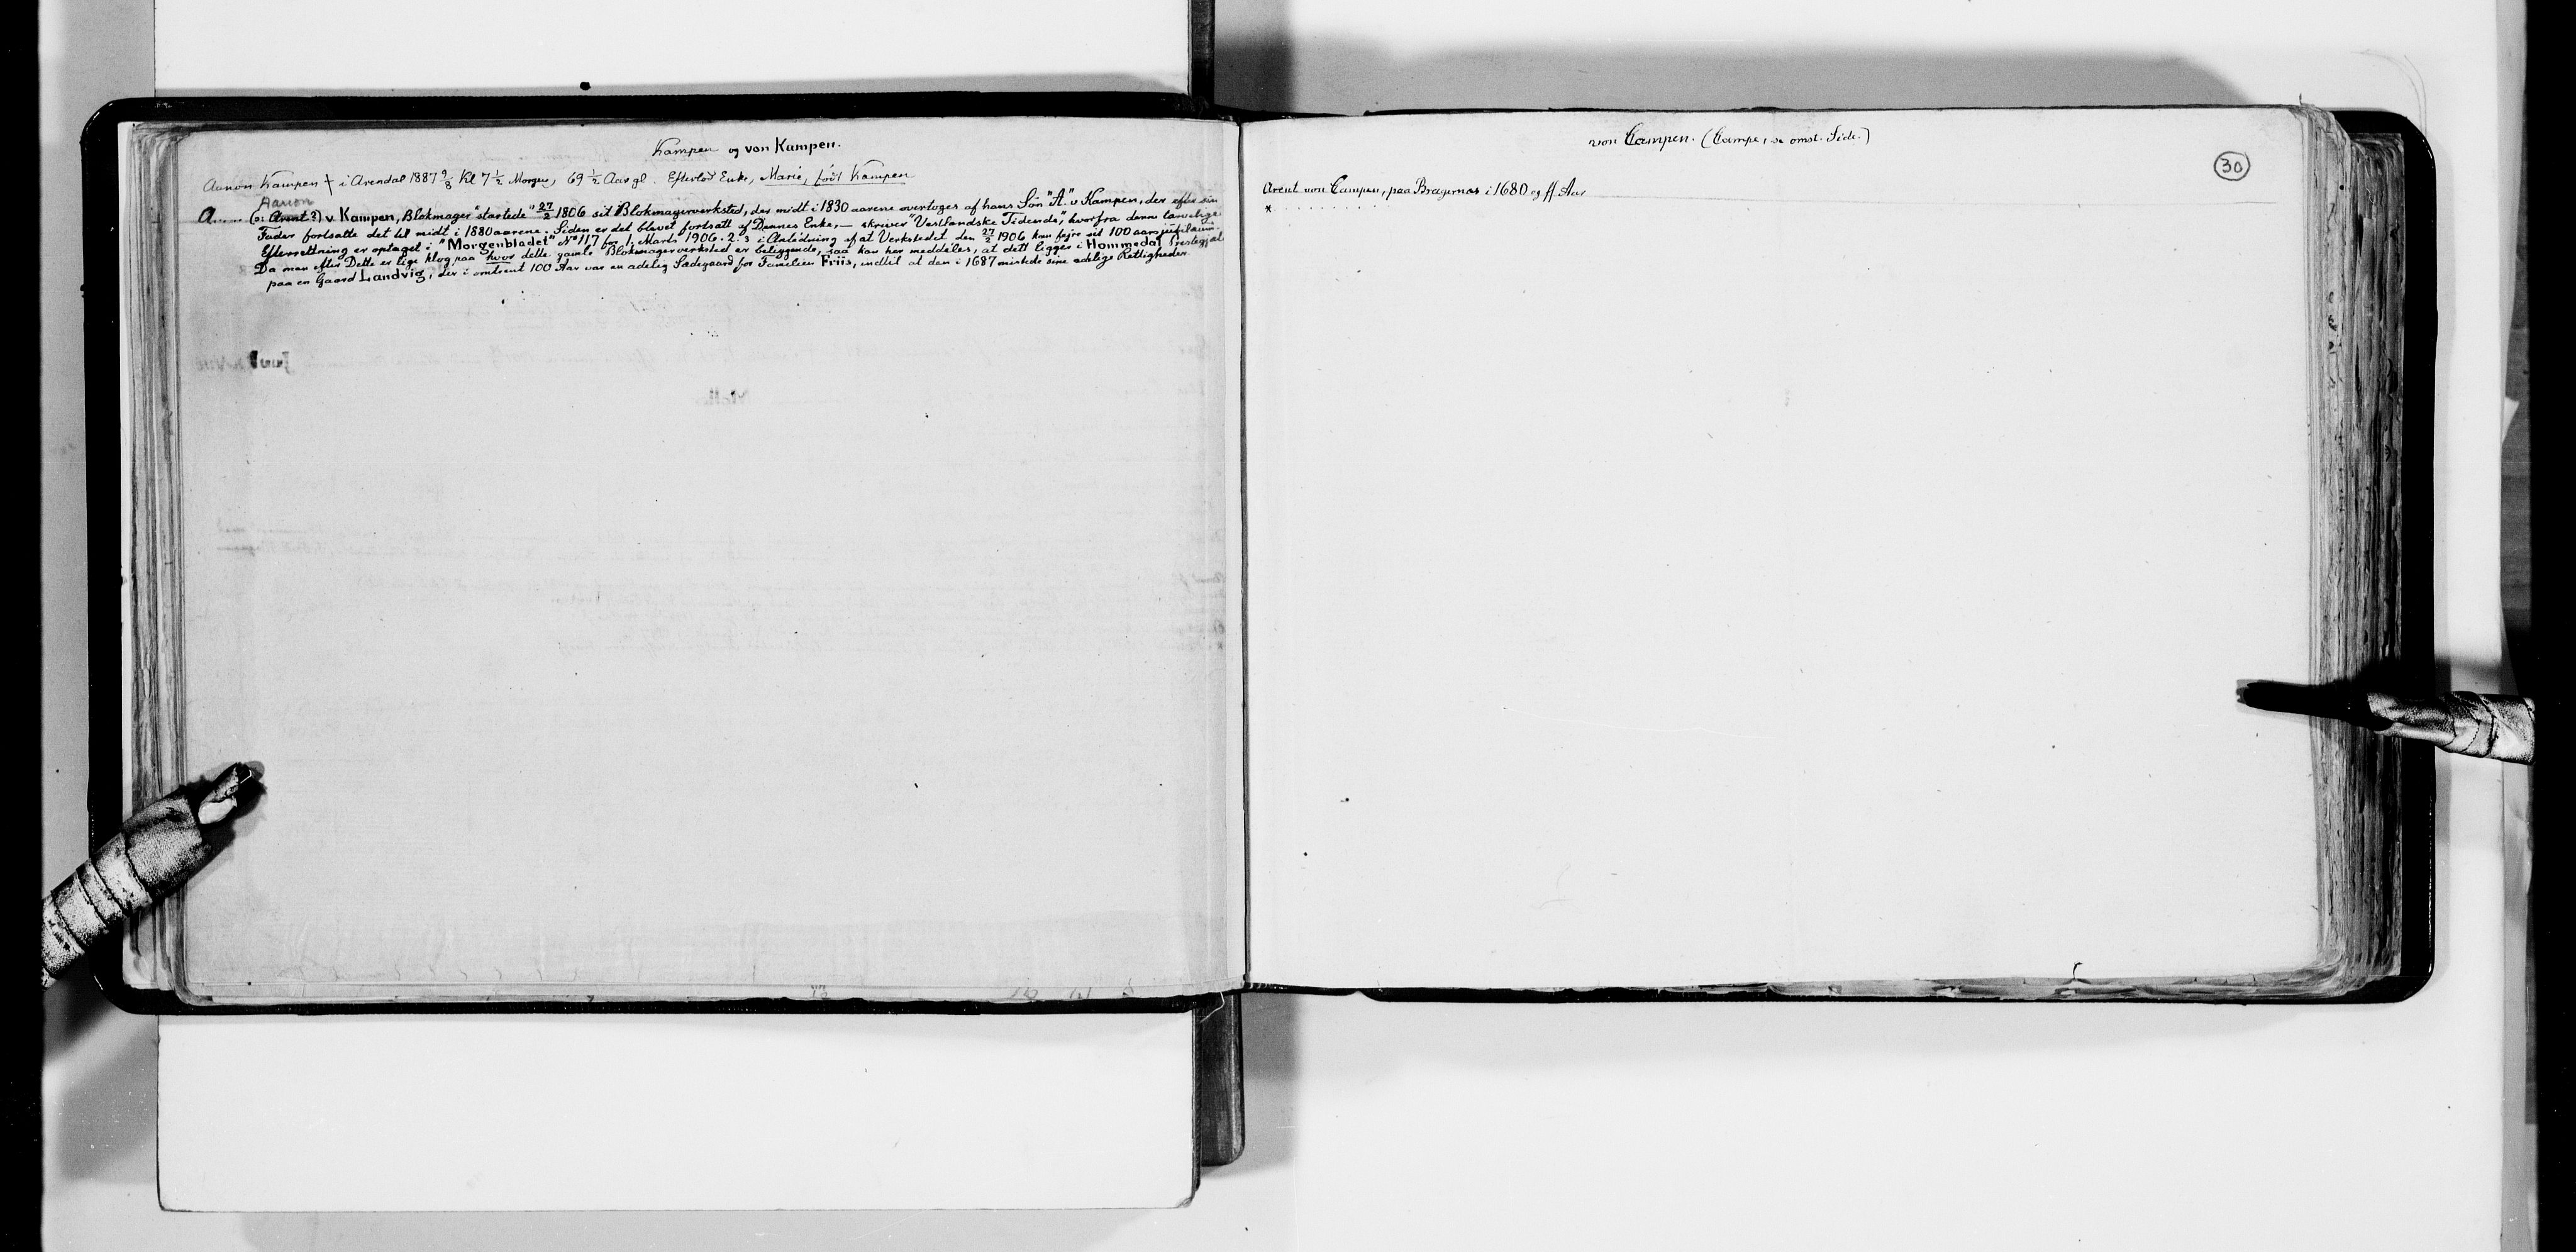 Kampen og von Kampen.
Aanon Kampen † i Arendal 1887 9/8 Kl 7 1/2 Morgen, 69 1/2 Aar gl. Efterlod Enke, Marie, født Kampen
Aanon
A (o: Arent?) v Kampen, Blokmager "startede" 27/2 1806 sit Blokmagerverksted, der midt i 1830 aarene overtoges af hans Søn "A." v Kampen, der efter sin
Fader fortsatte det til midt i 1880 aarene. Siden er det blevet fortsatt af Dennes Enke, — skriver "Vestlandske Tidende", hvorfra denne
Efterretning er optaget i "Morgenbladet" No 117 for 1. Marts 1906. 2. 3 i Anledning af at Verkstedet den 27/2 1906 kan fejre sit 100 aars jubilæum.
Da man efter Dette er lige klog paa hvor dette gamle Blokmagerverksted er beliggende, saa kan her meddeles, at dett ligger i Hommedal Prestegjæld
paa en Gaard Landvig, der i omtrent 100 Aar var en adelig Sædegaard for Familien Friis, indtil at den i 1687 mistede sine adelige Rettigheder
von Campen. (Campe, se omst. Side.)
30
Arent von Campen, paa Bragernæs i 1680 og ff. Aar
*